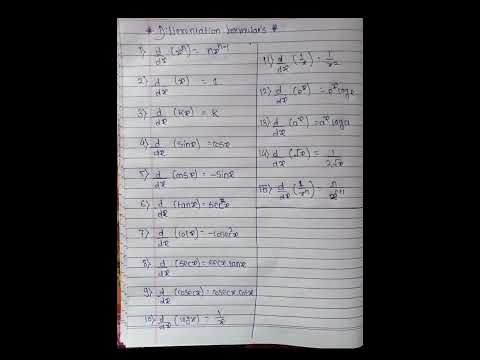 * Differentiation formulars *
1) d/dx (xⁿ) = nxⁿ⁻¹
2) d/dx (x) = 1
3) d/dx (kx) = k
4) d/dx (sinx) = cosx
5) d/dx (cosx) = -sinx
6) d/dx (tanx) = sec²x
7) d/dx (cotx) = -cosec²x
8) d/dx (secx) = secx.tanx
9) d/dx (cosecx) = cosecx.cotx
10) d/dx (logx) = 1/x
11) d/dx (1/x) = 1/x²
12) d/dx (eˣ) = eˣ loge
13) d/dx (aˣ) = aˣ loga
14) d/dx (√x) = 1/2√x
15) d/dx (1/xⁿ) = n/xⁿ⁺¹